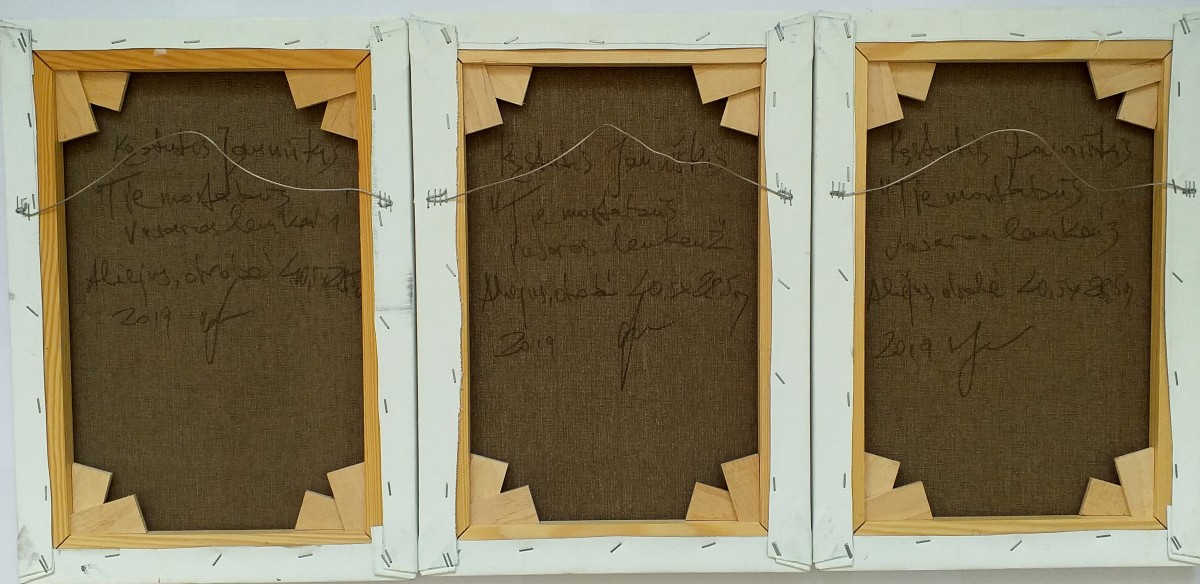 Kęstutis Jauniškis
Tie mostabūs
vasaros laukai 1
Aliejus, drobė 40,5x28,5
2019
Kęstutis Jauniškis
Tie mostabūs
vasaros laukai 2
Aliejus, drobė 40,5x28,5
2019
Kęstutis Jauniškis
Tie mostabūs
vasaros laukai 3
Aliejus, drobė 40,5x28,5
2019